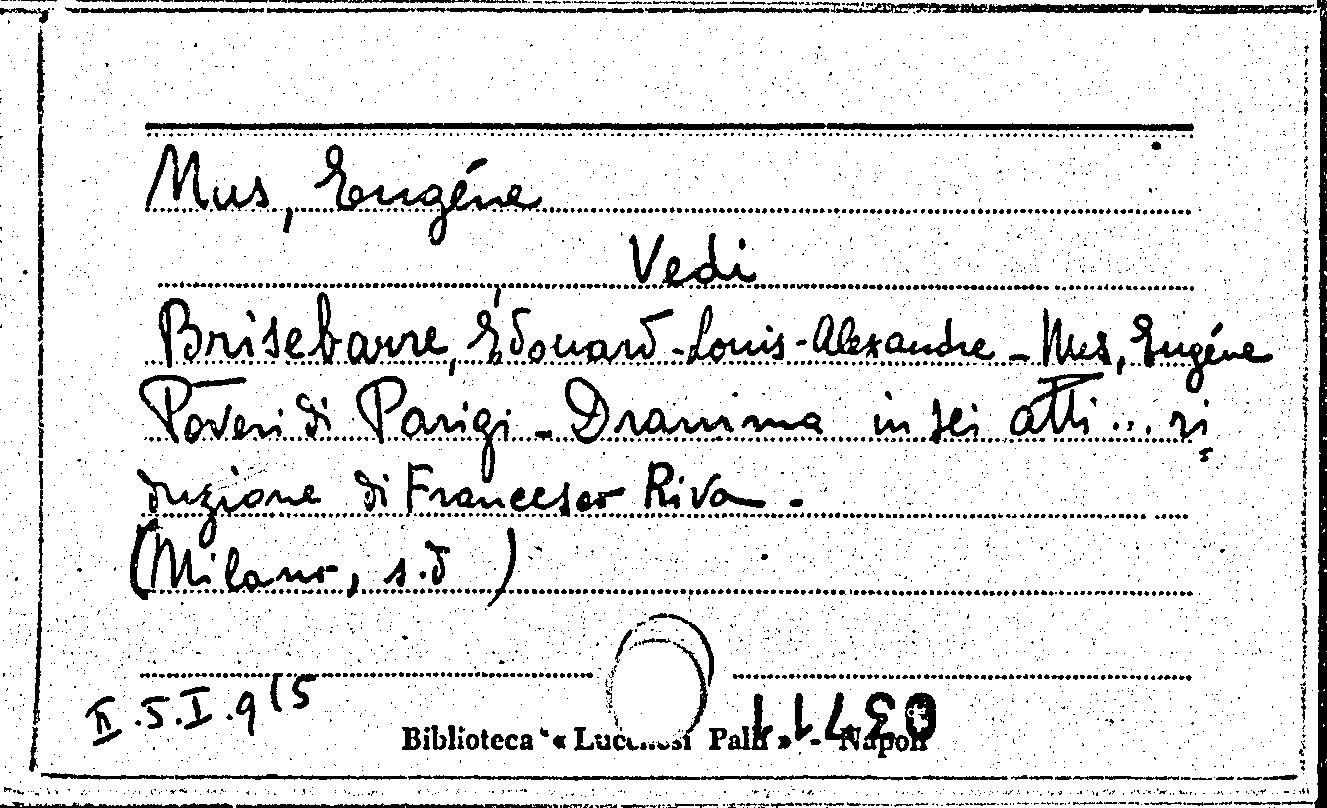 Mus, Eugéne
Vedi
Brisebarre, Édouard-Louis-Alexandre - Mus, Eugéne
Poveri di Parigi - Dramma in sei atti ... ri
duzione di Francesco Riva -
(Milano, s.d )
II.5.I.9 (5
Biblioteca « Lucchesi Palli » - Napoli